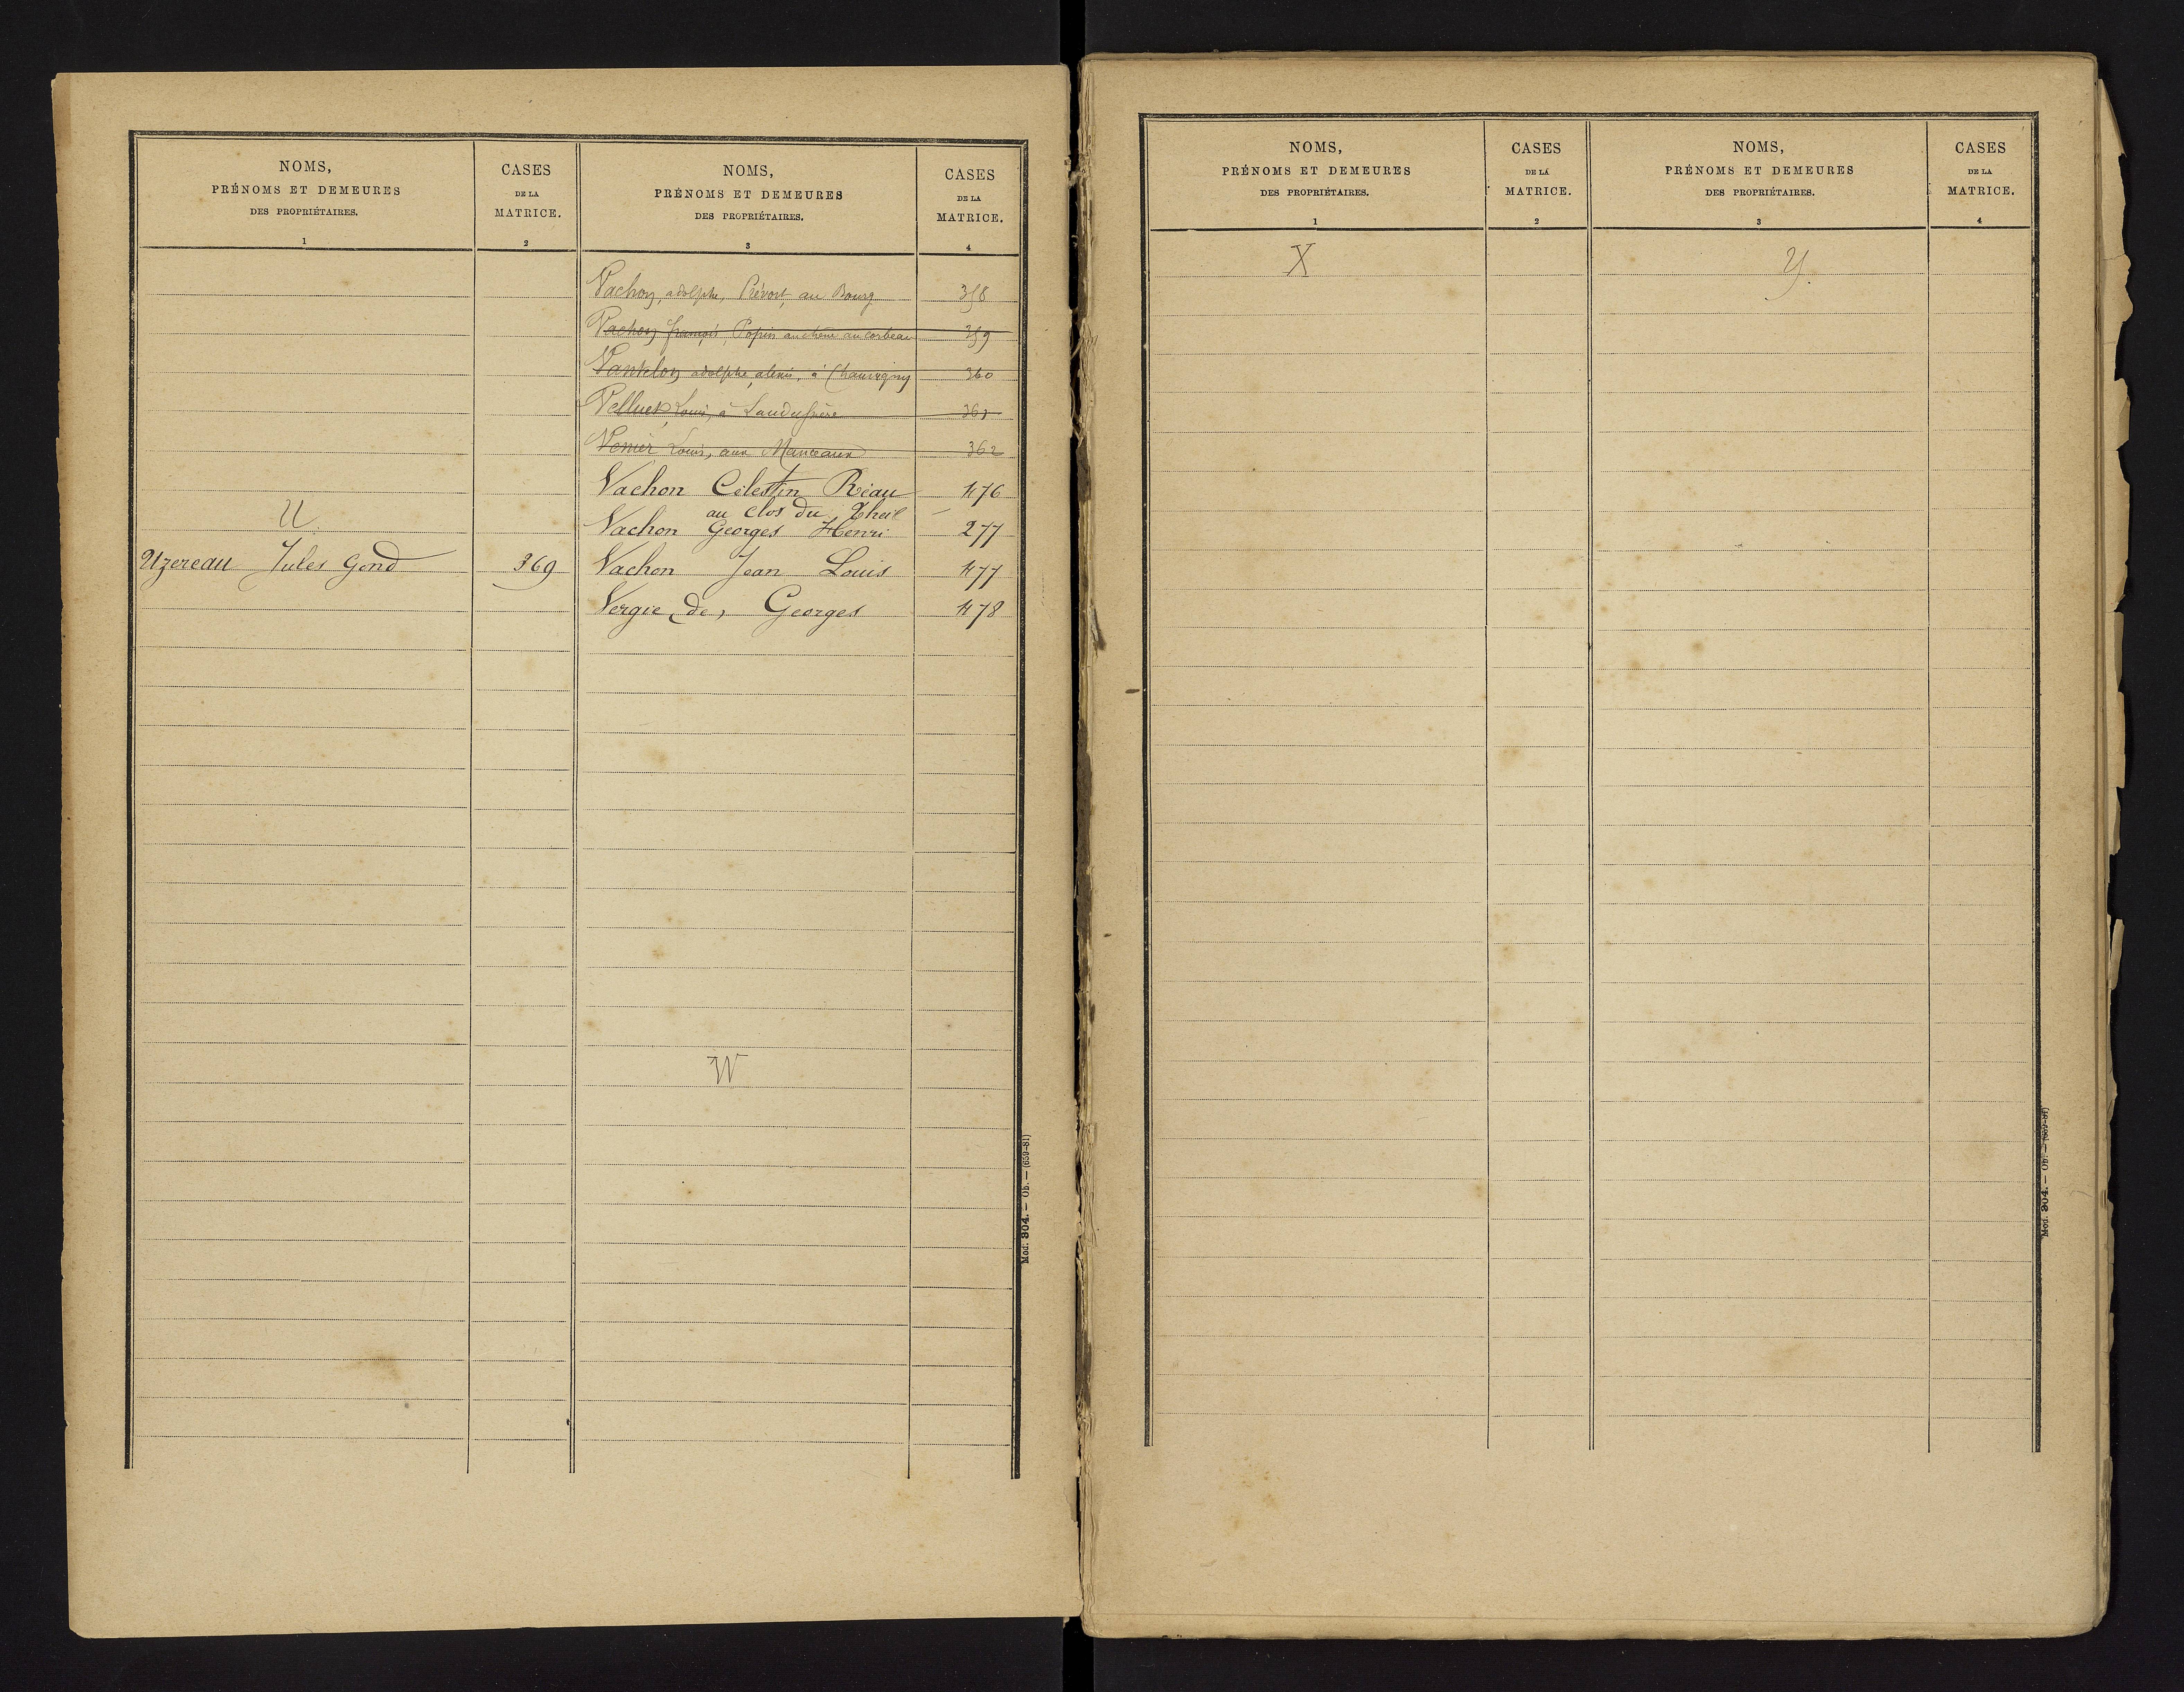 NOMS,
PRÉNOMS ET DEMEURES
DES PROPRIÉTAIRES.
1
CASES
DE LA
MATRICE.
2
U
Uzereau Jules Gond 369
NOMS,
PRÉNOMS ET DEMEURES
DES PROPRIÉTAIRES.
3
CASES
DE LA
MATRICE.
4
Vachon, adolphe, Prévost, au Bourg 358
Vachon françois, Popin au chêne au corbeau 359
Vantelon adolphe alexis, à Chauvigny 360
Velluet Louis, à 361
Venier Louis, aux Manceaux 362
Vachon Célestin Réau 476
au clos du Theil
Vachon Georges Henri 277
Vachon Jean Louis 477
Vergie, de, Georges 478
W
Mod. 304. — Ob. — (659-81)
NOMS,
PRÉNOMS ET DEMEURES
DES PROPRIÉTAIRES.
1
CASES
DE LA
MATRICE.
2
X
NOMS,
PRÉNOMS ET DEMEURES
DES PROPRIÉTAIRES.
3
CASES
DE LA
MATRICE.
4
Y.
Mod. 304. — Ob. — (659-81)